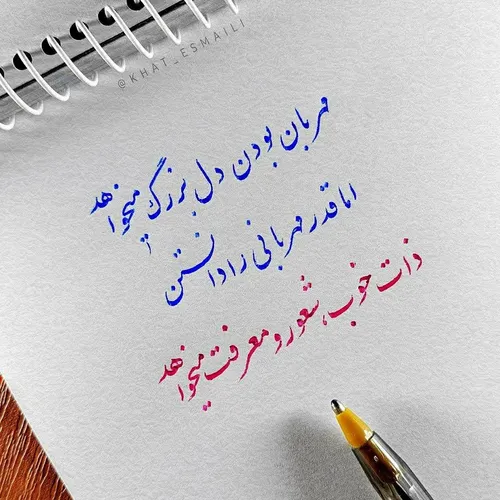 @KHAT_ESMAILI
مهربان بودن دل بزرگ میخواهد
اما قدر مهربانی را دانستن
ذات خوب، شعور و معرفت میخواهد